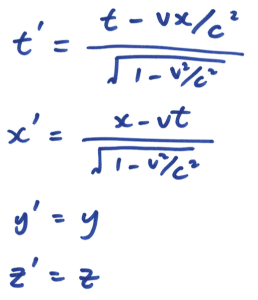 t' = (t - vx/c²) / √(1 - v²/c²)
x' = (x - vt) / √(1 - v²/c²)
y' = y
z' = z